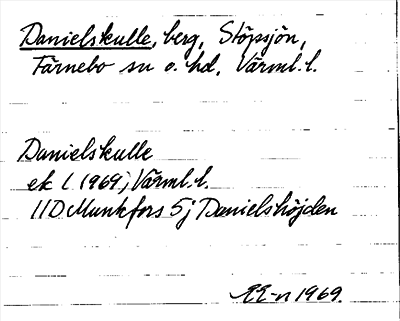 Danielskulle, berg, Stöpsjön,
Färnebo sn o. hd, Värml. l.
Danielskulle
ek l. 1969, Värml. l.
11D Munkfors 5j Danielshöjden
1969.